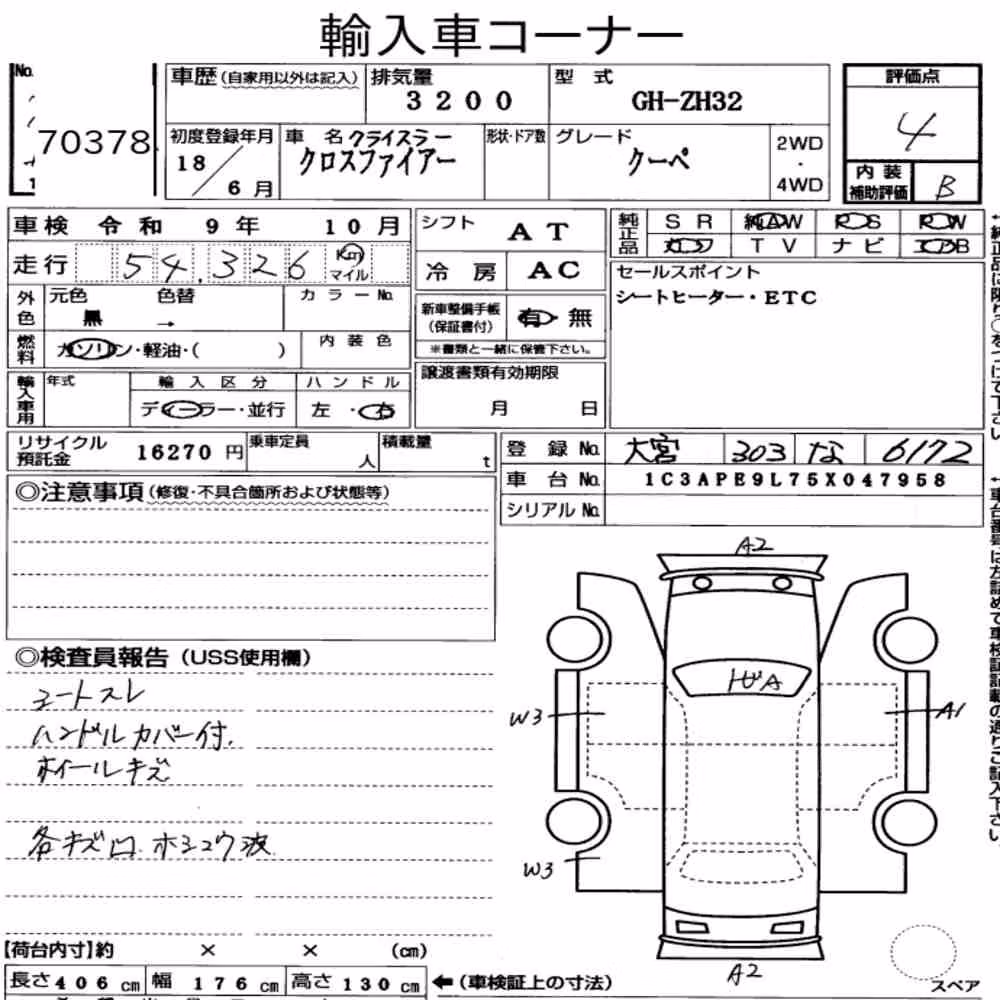 輸入車コーナー
No. 70378
車歴(自家用以外は記入) 排気量 3200 型式 GH-ZH32
評価点 4
初度登録年月 18/6月 車名 クライスラー クロスファイアー 形状・ドア数 グレード クーペ 2WD・4WD
内装補助評価 B
車検 令和 9年 10月
走行 54,326 Km マイル
シフト AT
冷房 AC
純正品 SR 純AW PS PW
カワ TV ナビ エアB
セールスポイント
シートヒーター・ETC
外色 元色 黒 色替 → カラーNo.
新車整備手帳(保証書付) 有・無
※書類と一緒に保管下さい。
燃料 ガソリン・軽油・( ) 内装色
輸入車用 年式 輸入区分 ディーラー・並行 ハンドル 左・右
譲渡書類有効期限
月 日
リサイクル預託金 16270円 乗車定員 人 積載量 t
登録No. 大宮 303 な 6172
車台No. 1C3APE9L75X047958
シリアルNo.
◎注意事項(修復・不具合箇所および状態等)
◎検査員報告(USS使用欄)
シートスレ
ハンドルカバー付.
ホイールキズ
各キズ凹 ホシュウ波
A2
トビA
W3
A1
W3
A2
【荷台内寸】約 × × (cm)
長さ 406 cm 幅 176 cm 高さ 130 cm ←(車検証上の寸法)
スペア